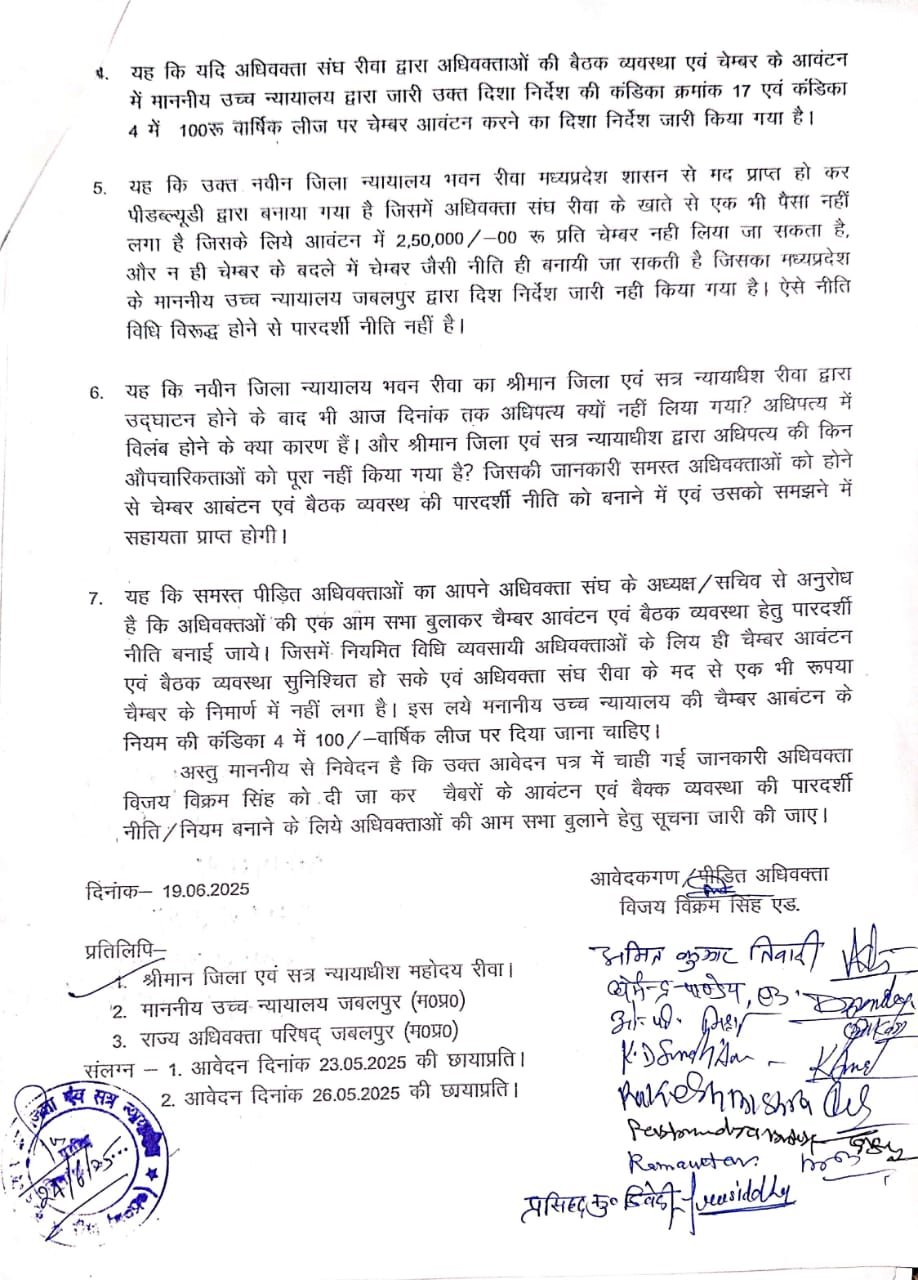 4. यह कि यदि अधिवक्ता संघ रीवा द्वारा अधिवक्ताओं की बैठक व्यवस्था एवं चेम्बर के आवंटन
में माननीय उच्च न्यायालय द्वारा जारी उक्त दिशा निर्देश की कंडिका क्रमांक 17 एवं कंडिका
4 में 100रू वार्षिक लीज पर चेम्बर आवंटन करने का दिशा निर्देश जारी किया गया है।
5. यह कि उक्त नवीन जिला न्यायालय भवन रीवा मध्यप्रदेश शासन से मद प्राप्त हो कर
पीडब्ल्यूडी द्वारा बनाया गया है जिसमें अधिवक्ता संघ रीवा के खाते से एक भी पैसा नहीं
लगा है जिसके लिये आवंटन में 2,50,000/-00 रू प्रति चेम्बर नही लिया जा सकता है,
और न ही चेम्बर के बदले में चेम्बर जैसी नीति ही बनायी जा सकती है जिसका मध्यप्रदेश
के माननीय उच्च न्यायालय जबलपुर द्वारा दिश निर्देश जारी नही किया गया है। ऐसे नीति
विधि विरूद्ध होने से पारदर्शी नीति नहीं है।
6. यह कि नवीन जिला न्यायालय भवन रीवा का श्रीमान जिला एवं सत्र न्यायाधीश रीवा द्वारा
उद्घाटन होने के बाद भी आज दिनांक तक अधिपत्य क्यों नहीं लिया गया? अधिपत्य में
विलंब होने के क्या कारण हैं। और श्रीमान जिला एवं सत्र न्यायाधीश द्वारा अधिपत्य की किन
औपचारिकताओं को पूरा नहीं किया गया है? जिसकी जानकारी समस्त अधिवक्ताओं को होने
से चेम्बर आबंटन एवं बैठक व्यवस्थ की पारदर्शी नीति को बनाने में एवं उसको समझने में
सहायता प्राप्त होगी।
7. यह कि समस्त पीड़ित अधिवक्ताओं का आपने अधिवक्ता संघ के अध्यक्ष/सचिव से अनुरोध
है कि अधिवक्तओं की एक आम सभा बुलाकर चैम्बर आवंटन एवं बैठक व्यवस्था हेतु पारदर्शी
नीति बनाई जाये। जिसमें नियमित विधि व्यवसायी अधिवक्ताओं के लिय ही चैम्बर आवंटन
एवं बैठक व्यवस्था सुनिश्चित हो सके एवं अधिवक्ता संघ रीवा के मद से एक भी रूपया
चैम्बर के निमार्ण में नहीं लगा है। इस लये मनानीय उच्च न्यायालय की चैम्बर आबंटन के
नियम की कंडिका 4 में 100/-वार्षिक लीज पर दिया जाना चाहिए।
अस्तु माननीय से निवेदन है कि उक्त आवेदन पत्र में चाही गई जानकारी अधिवक्ता
विजय विक्रम सिंह को दी जा कर चैबरों के आवंटन एवं बैक्क व्यवस्था की पारदर्शी
नीति/नियम बनाने के लिये अधिवक्ताओं की आम सभा बुलाने हेतु सूचना जारी की जाए।
दिनांक- 19.06.2025
आवेदकगण/पीड़ित अधिवक्ता
विजय विक्रम सिंह एड.
प्रतिलिपि-
1. श्रीमान जिला एवं सत्र न्यायाधीश महोदय रीवा।
2. माननीय उच्च न्यायालय जबलपुर (म०प्र०)
3. राज्य अधिवक्ता परिषद् जबलपुर (म०प्र०)
संलग्न - 1. आवेदन दिनांक 23.05.2025 की छायाप्रति।
2. आवेदन दिनांक 26.05.2025 की छायाप्रति।
अमित कुमार तिवारी
ओ. पी. मिश्रा
K. D Singh
Rakesh mishra
Ramavatar
जिला एवं सत्र न्यायाधीश
24/6/25